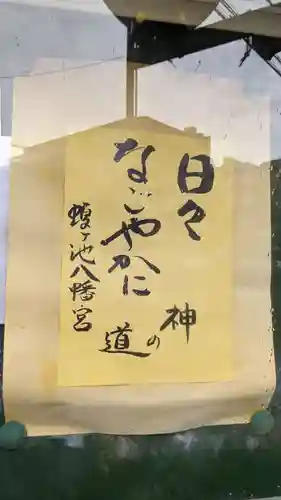 日々
なごやかに
神の道
蝮ヶ池八幡宮